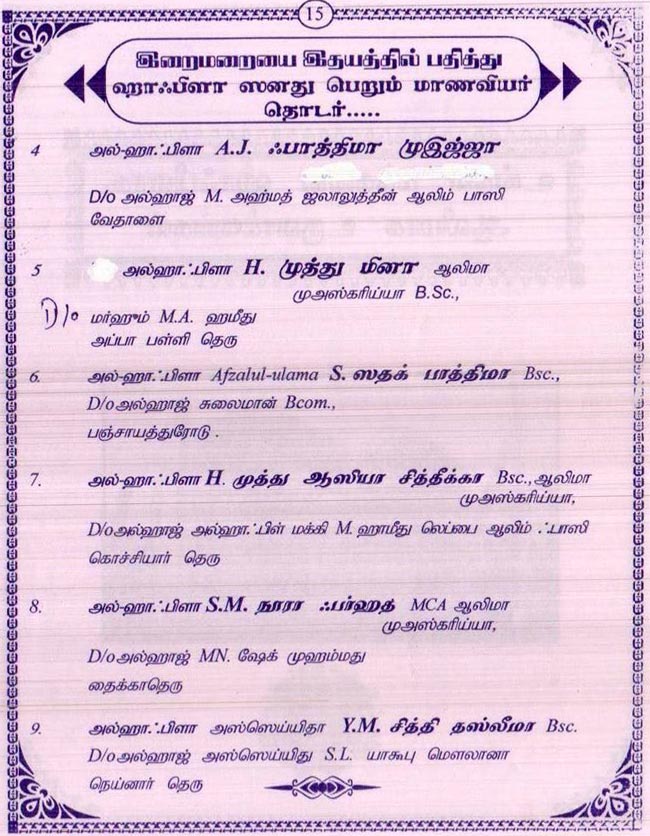 15
இறைமறையை இதயத்தில் பதித்து
ஹாஃபிளா ஸனது பெறும் மாணவியர்
தொடர்.....
4 அல்-ஹாஃபிளா A.J. ஃபாத்திமா முஇஜ்ஜா
D/o அல்ஹாஜ் M. அஹ்மத் ஜலாலுத்தீன் ஆலிம் பாஸி
வேதாளை
5 அல்ஹாஃபிளா H. முத்து மினா ஆலிமா
முஅஸ்கரிய்யா B.Sc.,
D/o மர்ஹும் M.A. ஹமீது
அப்பா பள்ளி தெரு
6. அல்-ஹாஃபிளா Afzalul-ulama S. ஸதக் பாத்திமா Bsc.,
D/o அல்ஹாஜ் சுலைமான் Bcom.,
பஞ்சாயத்துரோடு .
7. அல்-ஹாஃபிளா H. முத்து ஆஸியா சித்தீக்கா Bsc., ஆலிமா
முஅஸ்கரிய்யா,
D/o அல்ஹாஜ் அல்ஹாஃபிள் மக்கி M. ஹாமீது லெப்பை ஆலிம் ஃபாஸி
கொச்சியார் தெரு
8. அல்-ஹாஃபிளா S.M. நூரா ஃபர்ஹத் MCA ஆலிமா
முஅஸ்கரிய்யா,
D/o அல்ஹாஜ் MN. ஷேக் முஹம்மது
தைக்காதெரு
9. அல்ஹாஃபிளா அஸ்ஸெய்யிதா Y.M. சித்தி தஸ்லீமா Bsc.
D/o அல்ஹாஜ் அஸ்ஸெய்யிது S.L. யாகூபு மௌலானா
நெய்னார் தெரு